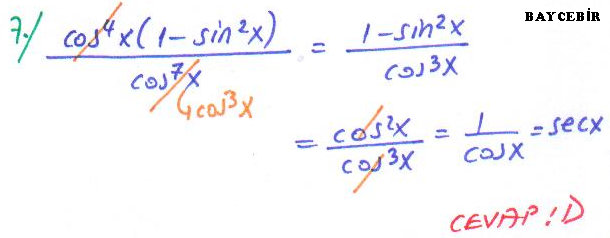 BAYCEBİR
7./ cos⁴x(1-sin²x) / cos⁷x = 1-sin²x / cos³x
↳cos³x
= cos²x / cos³x = 1 / cosx = secx
CEVAP: D